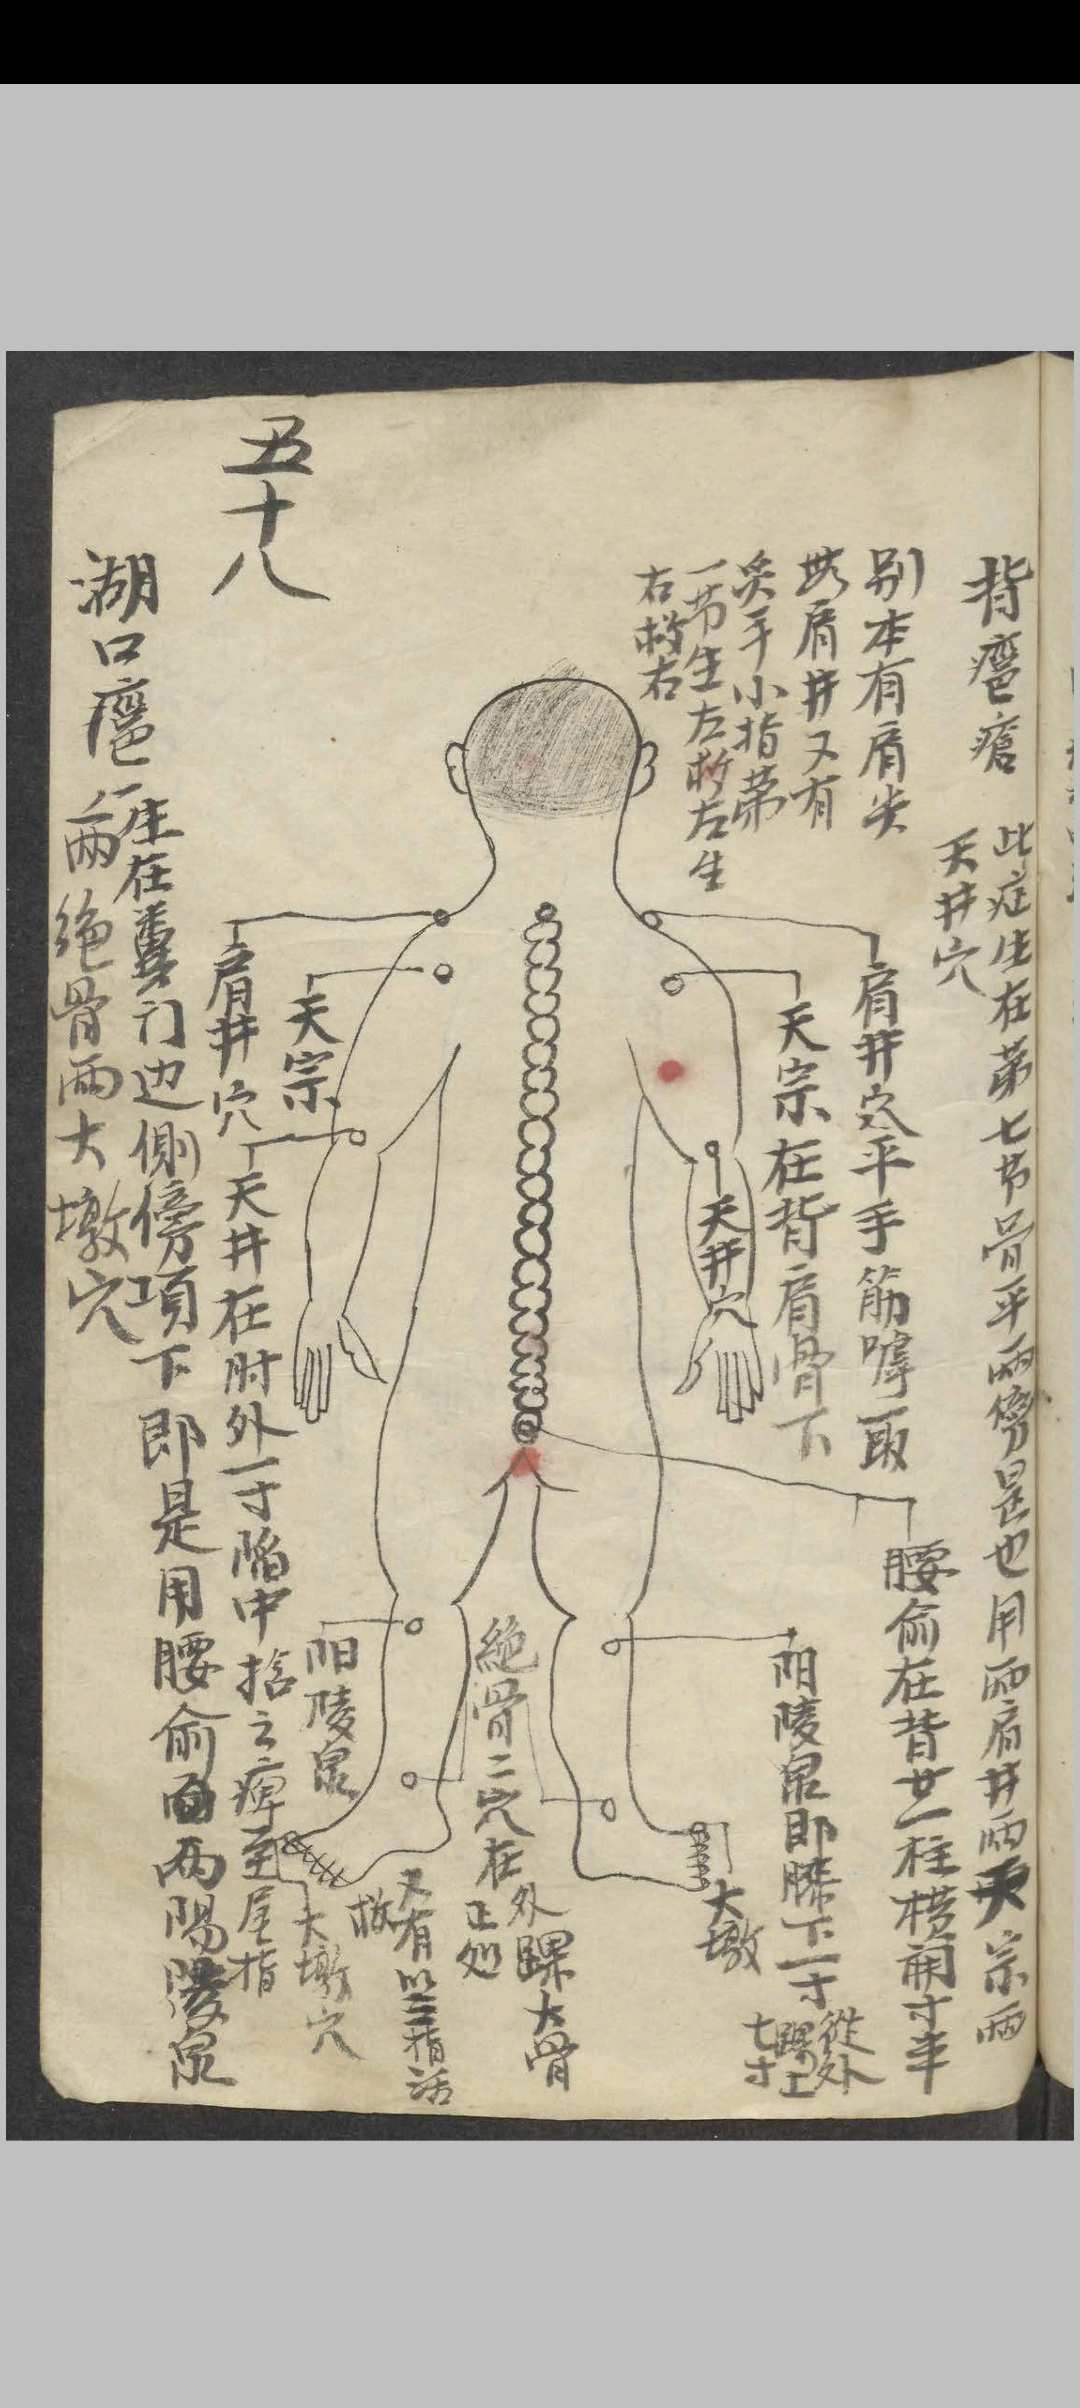 背瘡瘡
此症生在苐七节骨平两傍是也用两肩井两天宗两
天井穴
别本有肩尖
肩井又有
灸手小指苐
一节生左救左生
右救右
肩井穴平手筋罅取
天宗在背肩骨下
天井穴
腰俞在背廿一柱横開寸半
阳陵泉即膝下一寸
從外
踝上
七寸
大墩
絶骨二穴在
外踝大骨
正処
又有以三指活
救
天宗
肩井穴
天井在肘外一寸陷中捨之痺至尾指
阳陵泉
大墩穴
五十八
湖口
生在糞门边側傍項下即是用腰俞両陽陵泉
両绝骨両大墩穴